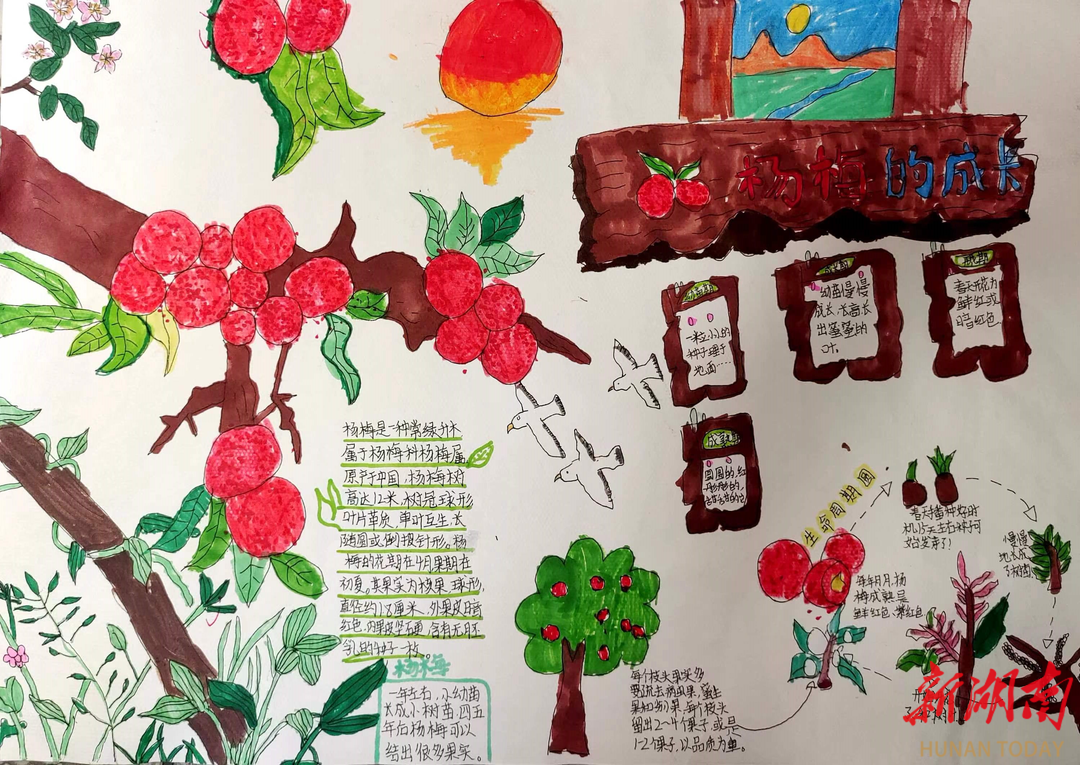 杨梅的成长
一粒小小的
种子埋于
地面……
幼苗慢慢
成长,长高长
出蛋蛋的
叶。
成熟期
春天花为
鲜红或
暗红色
成熟期
圆圆的,红
彤彤的,
杨梅是一种常绿乔木
属于杨梅科杨梅属
原产于中国,杨梅树
高达12米,树冠球形
叶片革质,单叶互生,长
随圆或倒披针形。杨
梅的花期在4月果期在
初夏。其果实为核果,球形,
直径约1.8厘米,外果皮暗
红色,内果皮坚硬,含有无胚
乳的种子一枚。
杨梅
一年左右,小幼苗
大成小树苗,四五
年后杨梅可以
结出很多果实。
生命周期图
春天播种好时
机,15天左右种子
始发芽了!
慢慢
地长成
了树苗
年年月月,杨
梅成熟呈
鲜红色、紫红色
每个枝头果实多
要疏去病虫果、
果和多余果,每个枝头
留出2~4个果子,或是
1-2个果子,以品质为重。
新湖南
HUNAN TODAY